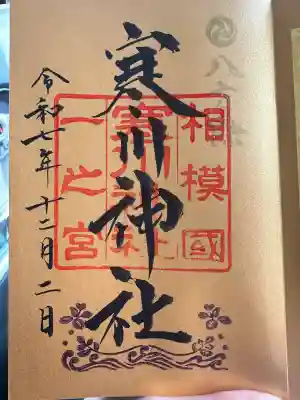 相模國
寒川神社
一之宮
寒川神社
令和七年十二月二日